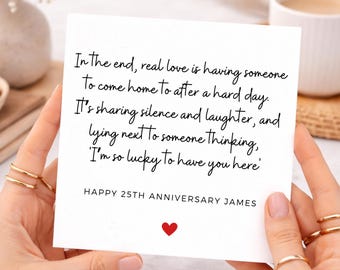 In the end, real love is having someone
to come home to after a hard day.
It's sharing silence and laughter, and
lying next to someone thinking,
'I'm so lucky to have you here'
HAPPY 25TH ANNIVERSARY JAMES